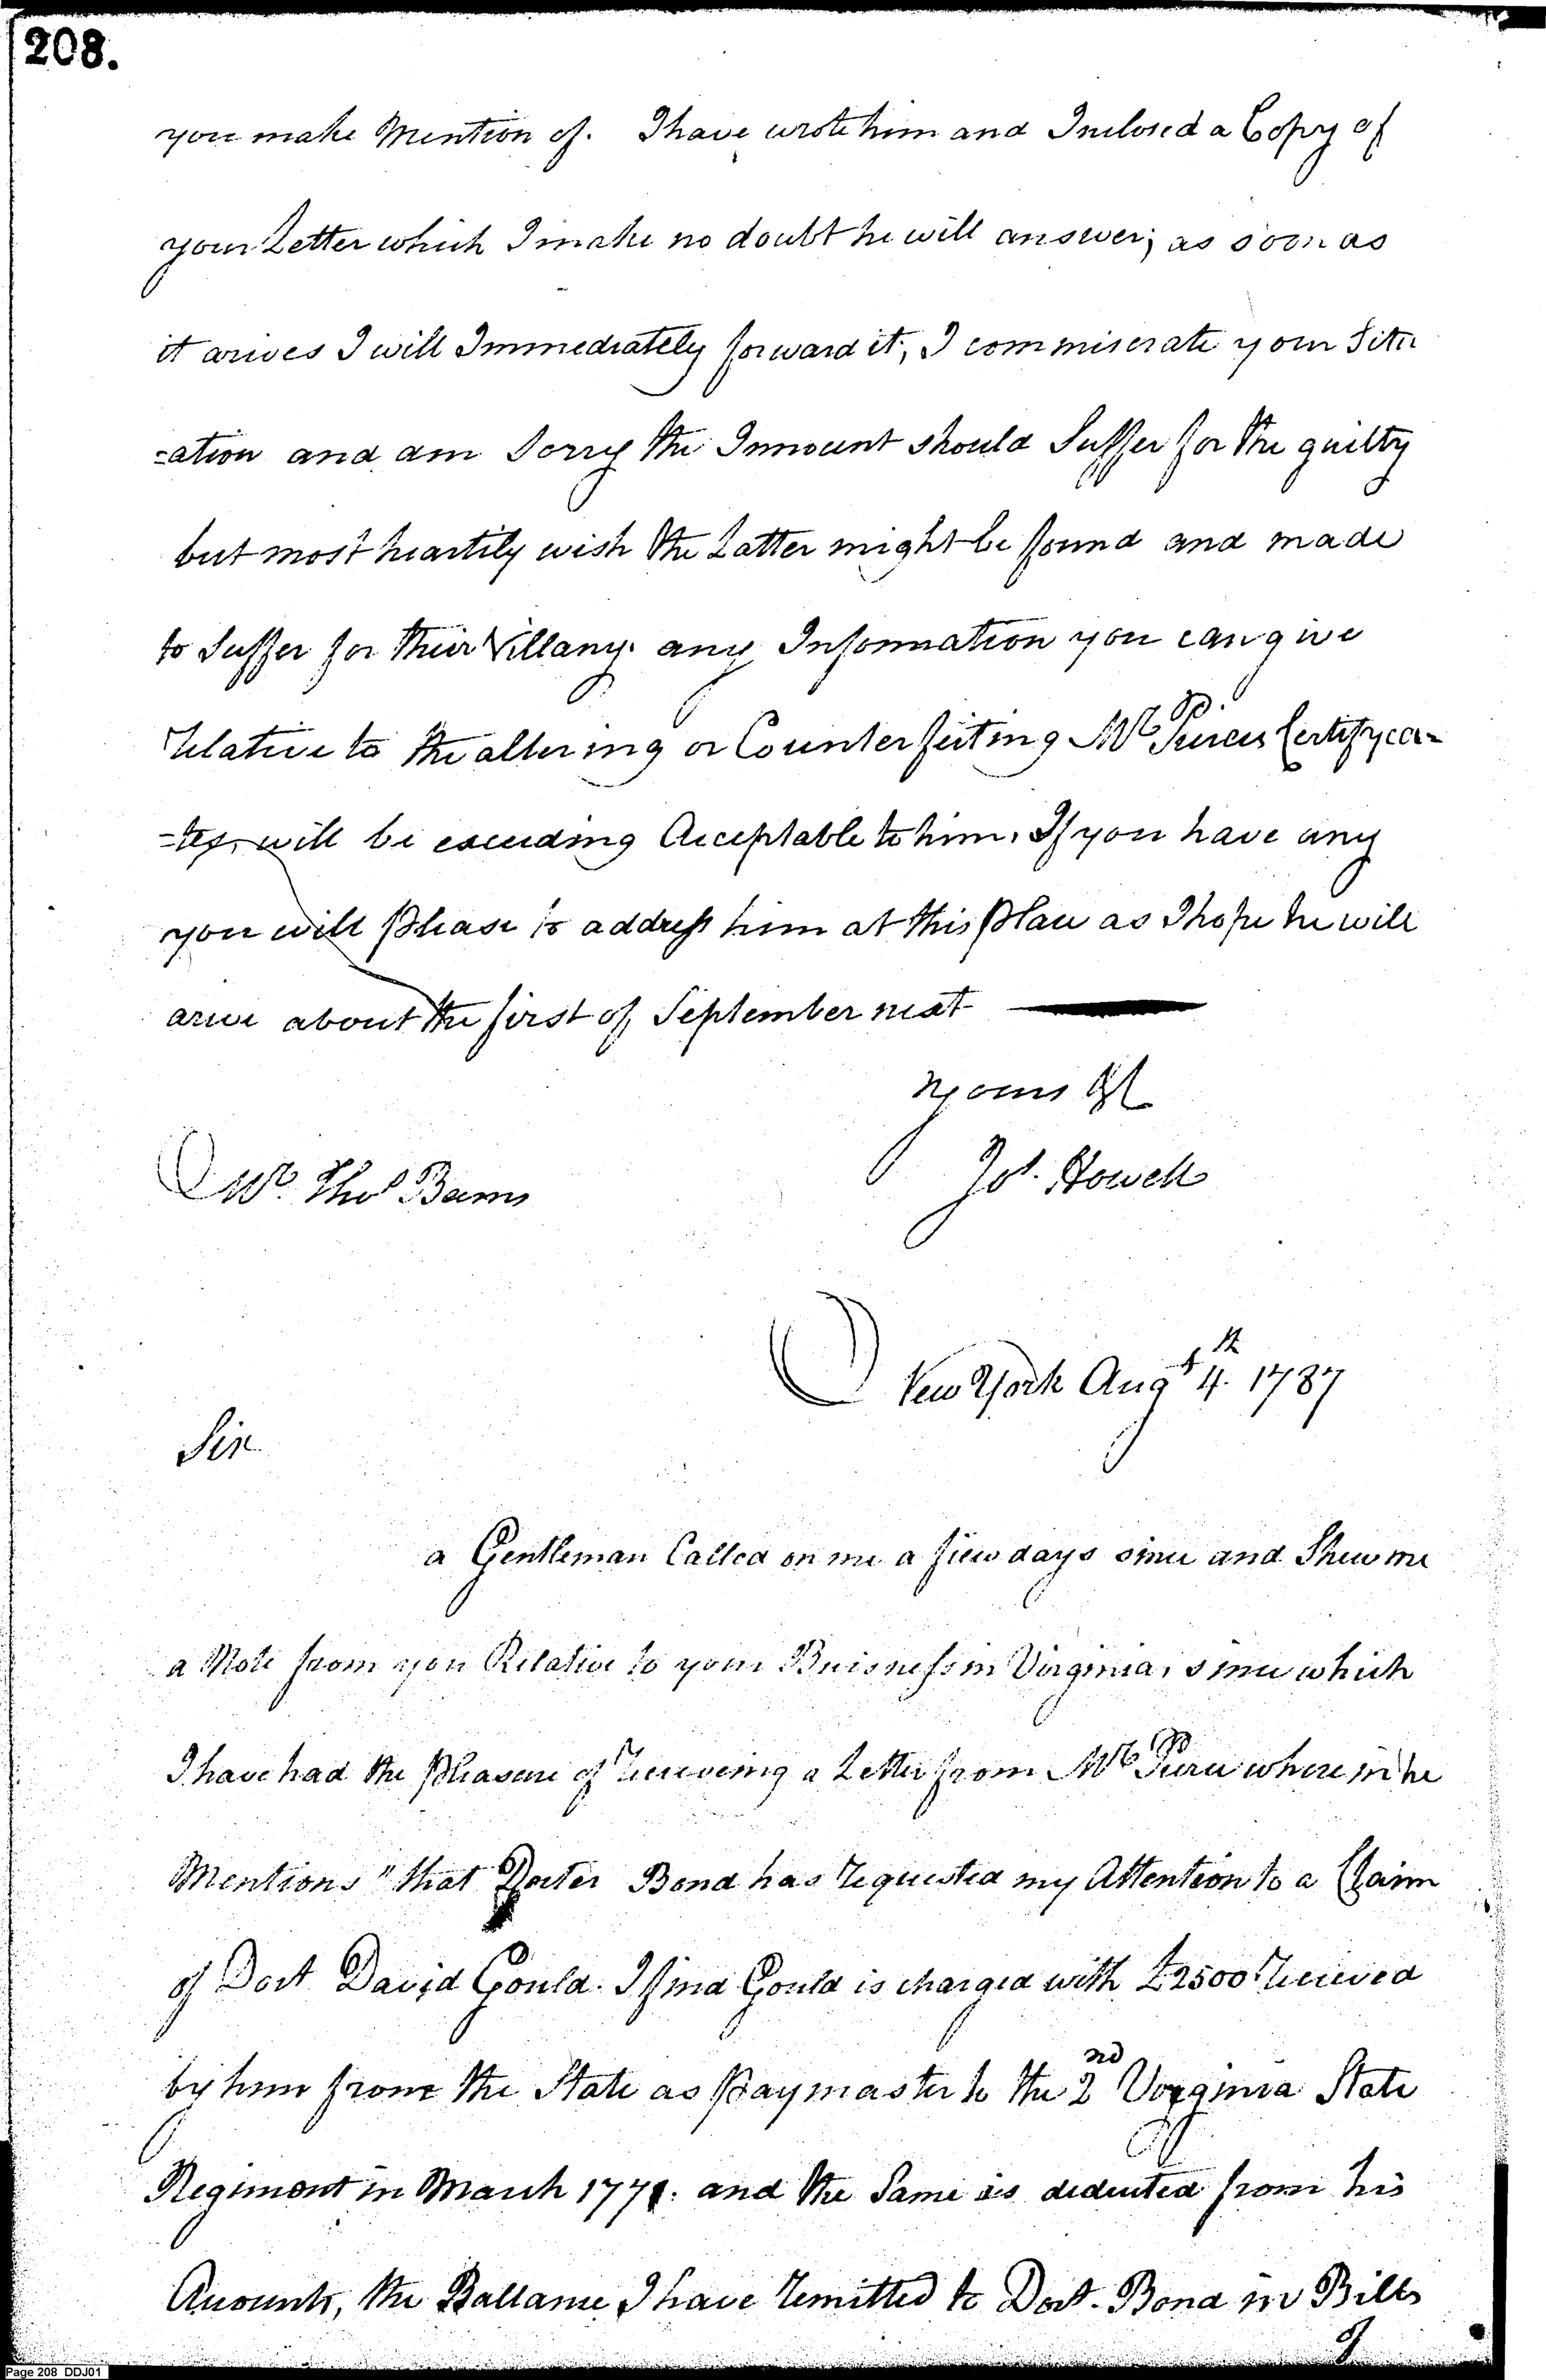 208.
you make Mention of. I have wrote him and Inclosed a Copy of
your Letter which I make no doubt he will answer; as soon as
it arives I will Immediately forward it, I commiserate your Situ
-ation and am Sorry the Innocent should Suffer for the guilty
but most heartily wish the Latter might be found and made
to Suffer for their Villany. any Information you can give
relative to the altering or Counterfeiting Mr Pierces Certifyca-
-tes, will be exceeding Acceptable to him. If you have any
you will please to address him at this place as I hope he will
arive about the first of September next
yours &c
Jos. Howell
Mr. Thos
New York Augt 4th. 1787
Sir
a Gentleman Called on me a few days since and Shew me
a Note from you Relative to your Buisness in Virginia, since which
I have had the pleasure of receiveing a Letter from Mr Pierce where in he
Mentions "that Docter Bond has requested my Attention to a Claim
of Doct David Gould. I find Gould is charged with £2500 received
by him from the State as paymaster to the 2nd Virginia State
Regiment in March and the Same is deducted from his
Accounts, the Ballance I have remitted to Doct. Bond in Bills
Page 208 DDJ01